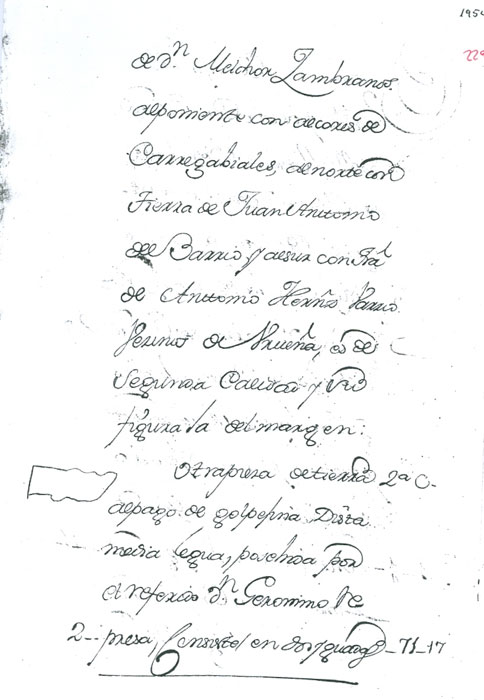 195
229
de Dn. Melchor Zambranos.
alponiente con alcores de
Carregabiales, alnorte con
Tierra de Juan Antonio
del Barrio y alsur con
de Antonio
Vecino de es de
Segunda Calidad y su
figura la del margen:
Otra pieza de tierra 2a C.
alpago de golpejina Dista
media legua, posehida por
el referido Dn. Geronimo Re
2-- presa, Consiste en dos quartas 71-17